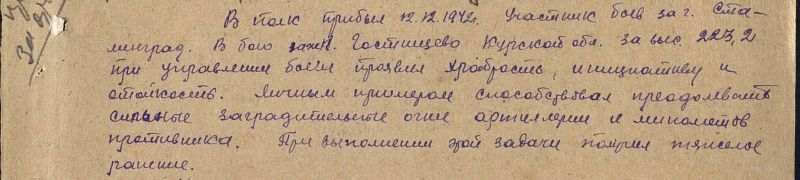 В полк прибыл 12.12.1942г. Участник боев за г. Ста-
линград. В бою за н.п. Гостищево Курской обл. за выс. 223,2
при управлении боем проявил храбрость, инициативу и
стойкость. Личным примером способствовал преодолевать
сильные заградительные огни артиллерии и минометов
противника. При выполнении этой задачи получил тяжелое
ранение.